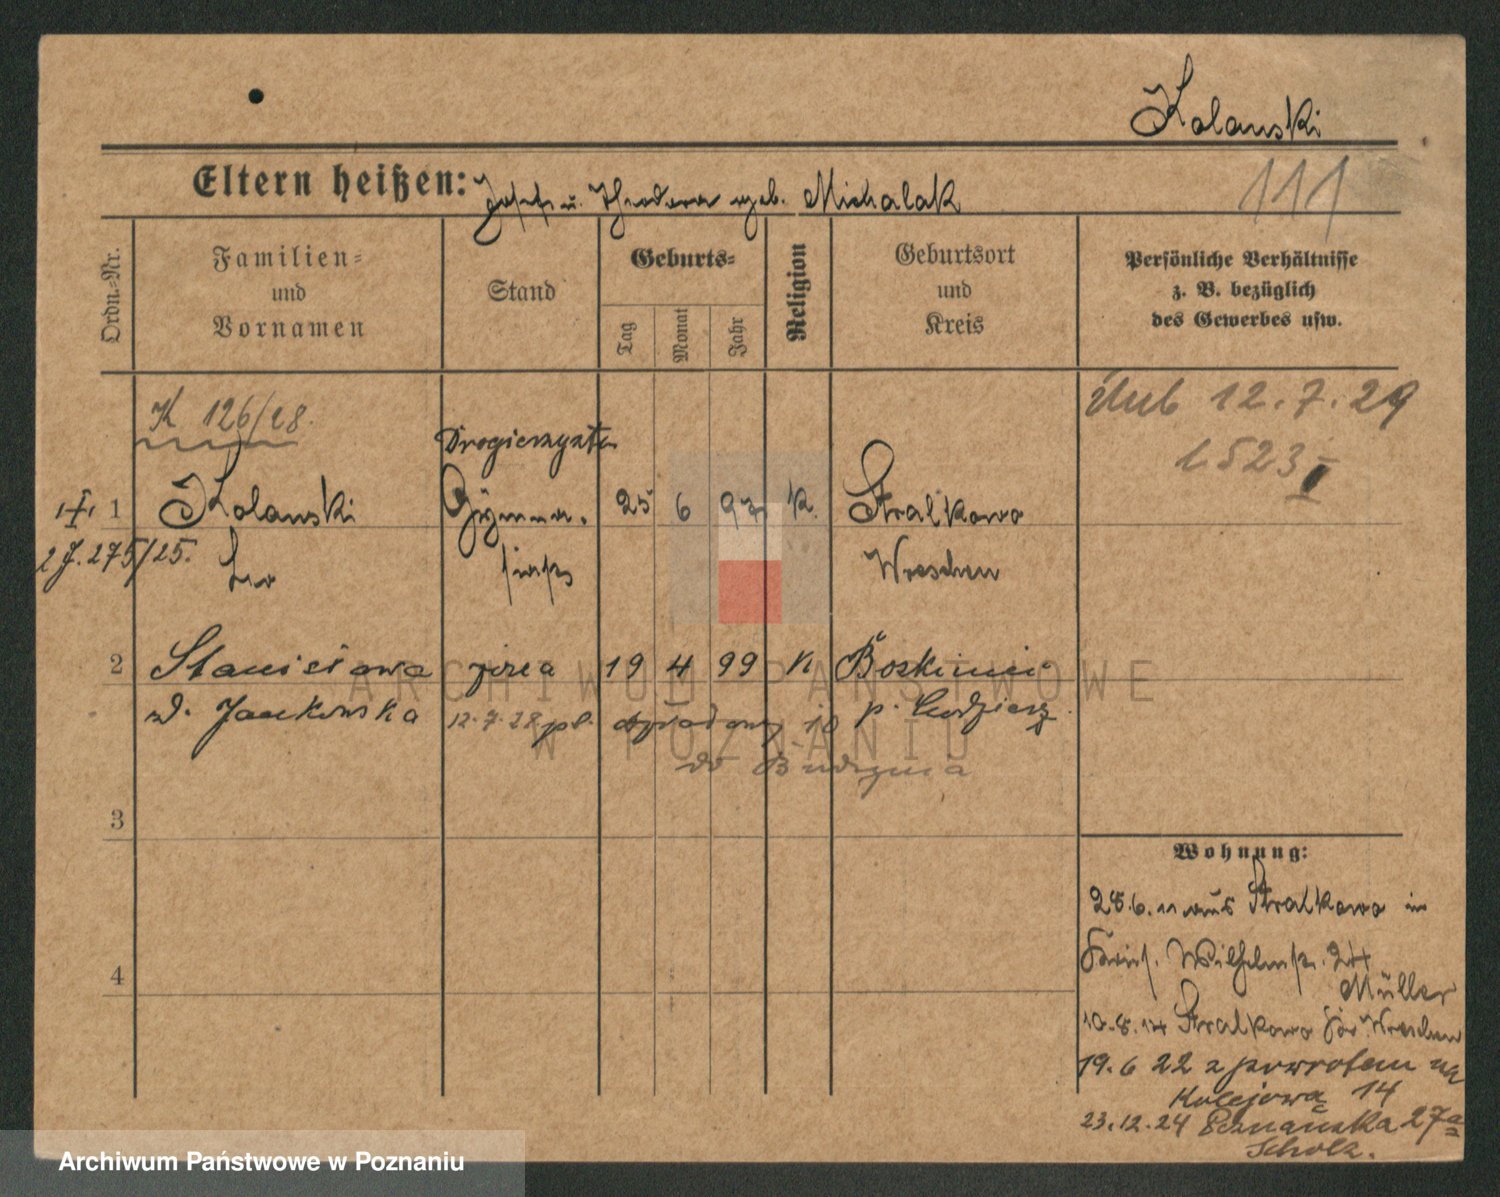 Kolanski
Eltern heißen: Josef u. Theodora geb. Michalak
111
Ordn.-Nr.
Familien-
und
Vornamen
Stand
Geburts-
Tag
Monat
Jahr
Religion
Geburtsort
und
Kreis
Persönliche Verhältnisse
z. B. bezüglich
des Gewerbes usw.
K 126/28.
12.7.29
1523
Drogierzysta
1 Kolanski Gymna- 25 6 97 k. Stralkowo
2 J. 275/25. Leo siast Wreschen
2 Stanisława żona 19 4 99 k
z d. Jankowska 12.7.28
do
3
4
Wohnung:
28.6.11 aus Stralkowo in
Wilhelmstr. 24
Müller
10.8.14 Stralkowo Wreschen
19.6 22 z powrotem na
Kolejowa 14
23.12.24 Poznańska 27a
Scholz.
ARCHIWUM PAŃSTWOWE
W POZNANIU
Archiwum Państwowe w Poznaniu